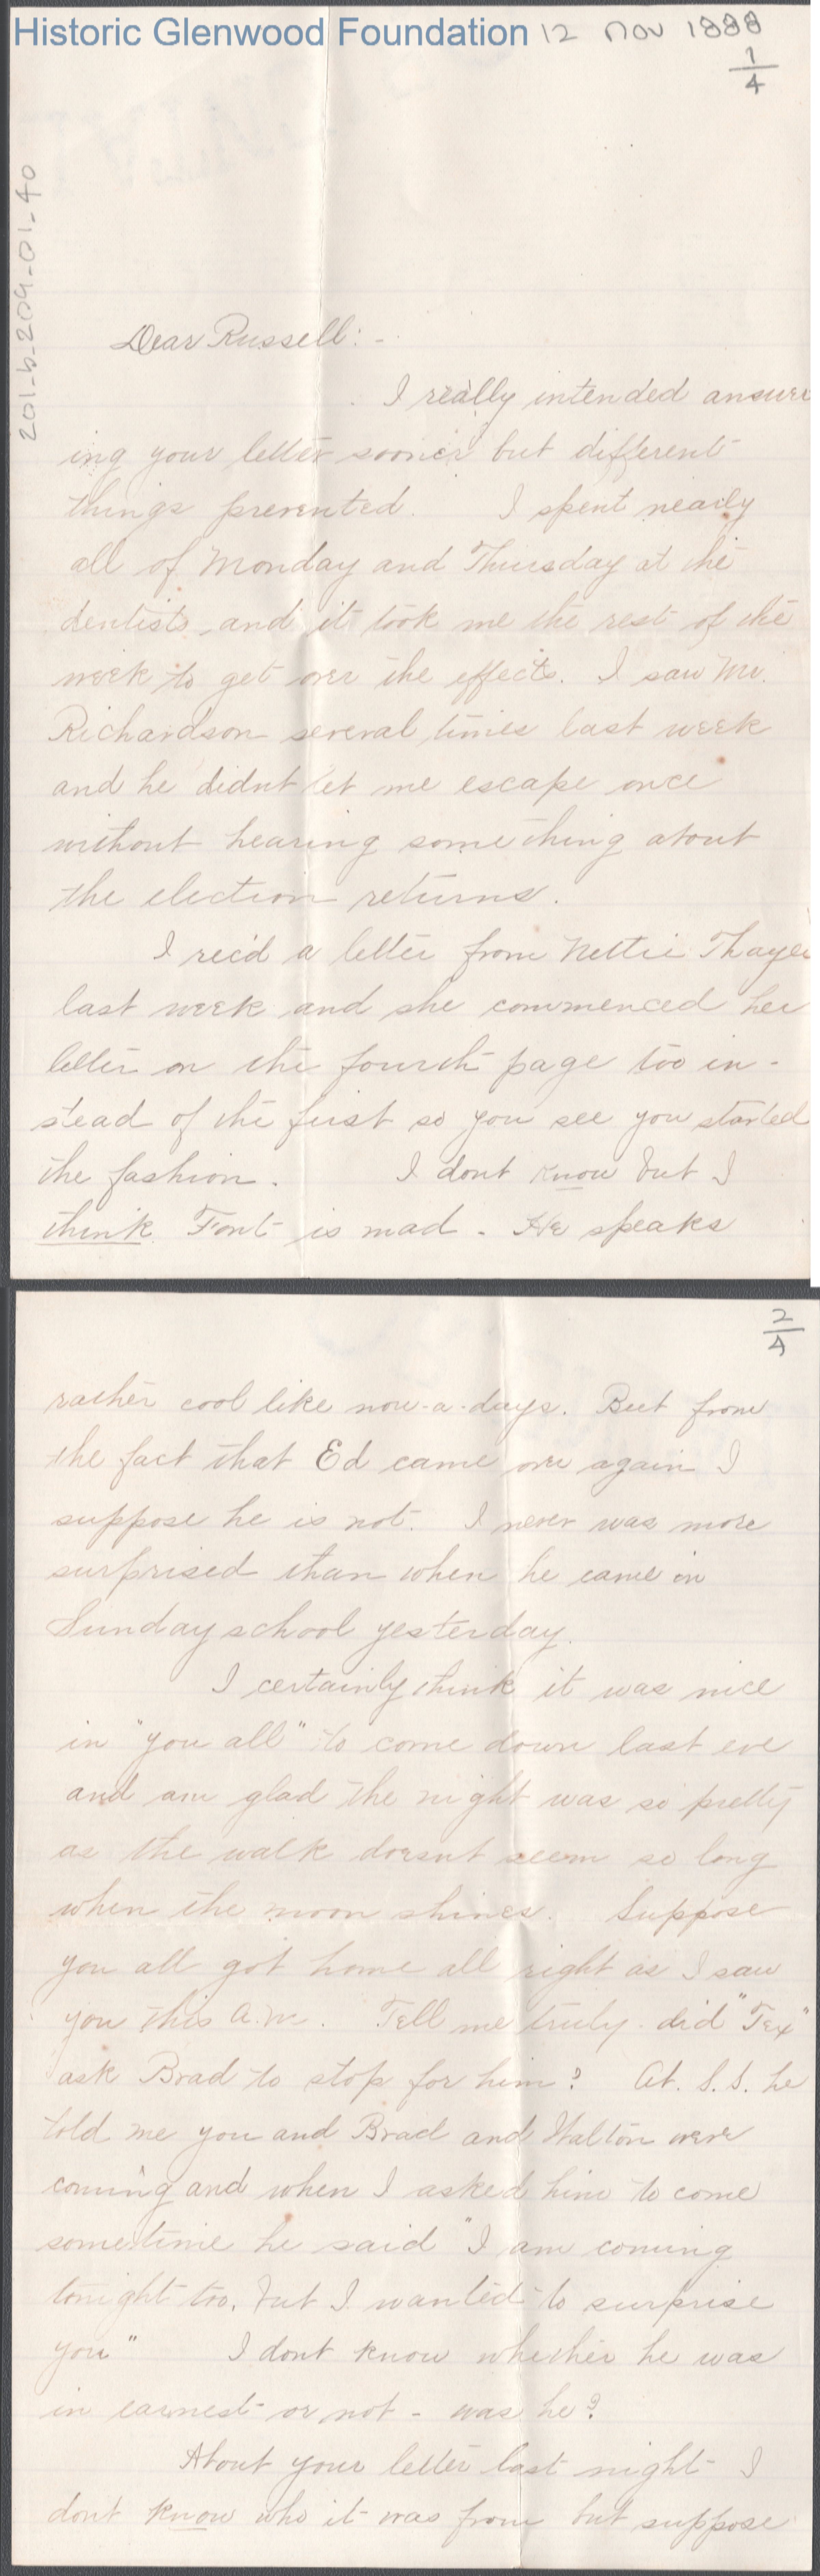 Historic Glenwood Foundation 12 Nov 1888
1/4
201-b-209-01-40
Dear Russell:-
I really intended answer
ing your letter sooner but different
things prevented. I spent nearly
all of Monday and Thursday at the
dentists and it took me the rest of the
week to get over the effects. I saw Mr.
Richardson several times last week
and he didnt let me escape once
without hearing something about
the election returns.
I rec'd a letter from Nettie Thayer
last week and she commenced her
letter on the fourth page too in-
stead of the first so you see you started
the fashion. I dont know but I
think Font is mad - He speaks
2/4
rather cool like now-a-days. But from
the fact that Ed came over again I
suppose he is not. I never was more
surprised than when he came in
Sunday school yesterday.
I certainly think it was nice
in "you all" to come down last eve
and am glad the night was so pretty
as the walk doesnt seem so long
when the moon shines. Suppose
you all got home all right as I saw
you this a.m. Tell me truly did "Tex"
ask Brad to stop for him? At. S.S. he
told me you and Brad and Walton were
coming and when I asked him to come
sometime he said "I am coming
tonight too, but I wanted to surprise
you" I dont know whether he was
in earnest or not - was he?
About your letter last night I
dont know who it was from but suppose